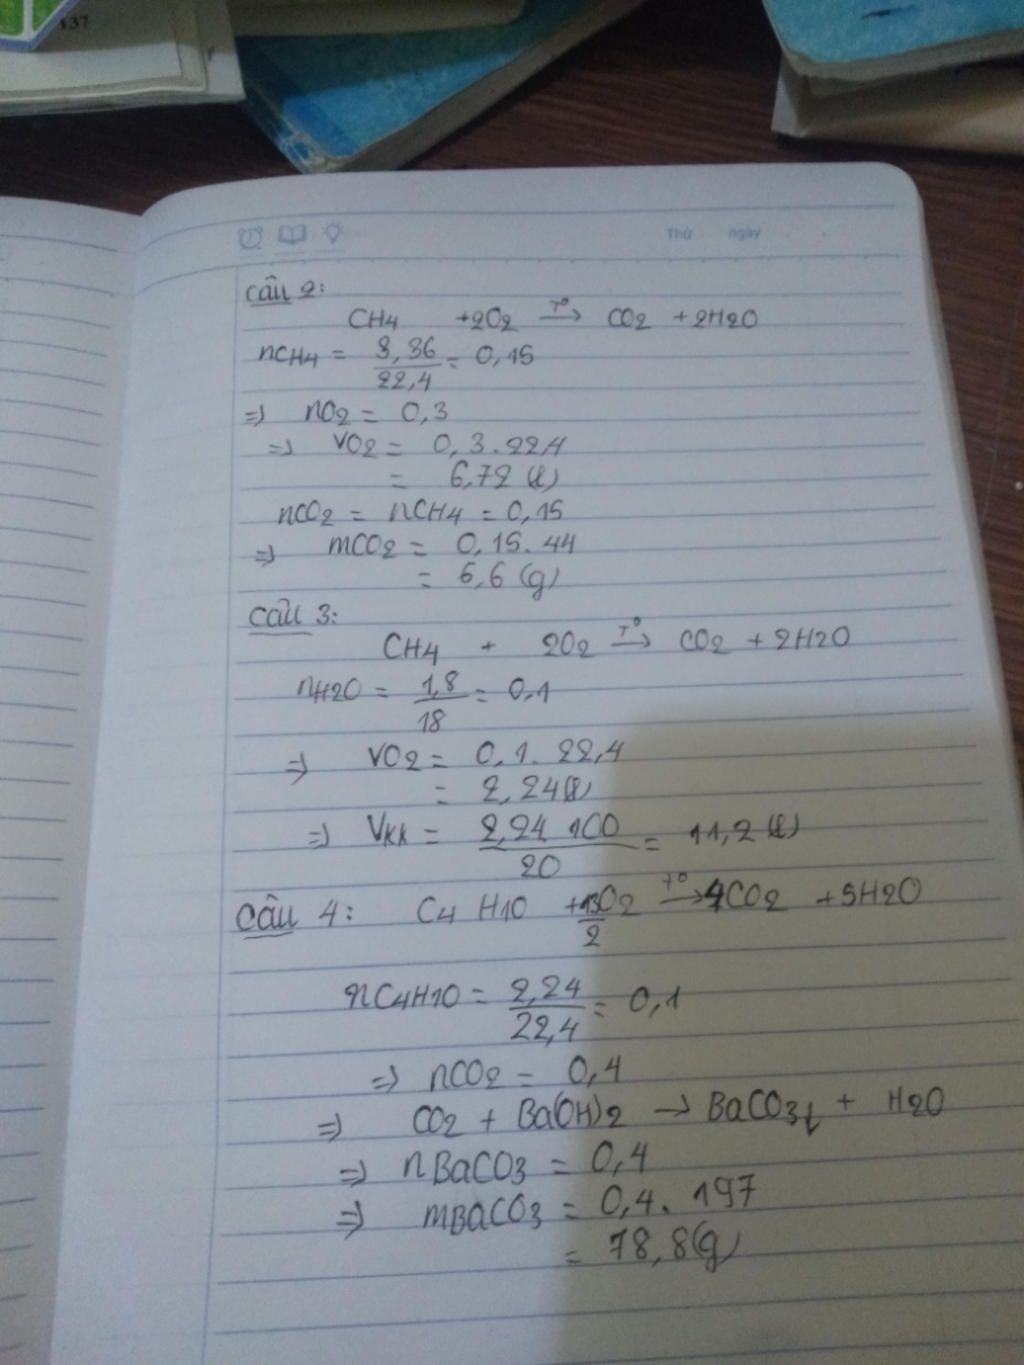 137
Thứ ngày
Câu 2:
CH4 +2O2 T° → CO2 + 2H2O
nCH4 = 3,36/22,4 = 0,15
=> nO2 = 0,3
=> VO2 = 0,3.22,4
= 6,72 (l)
nCO2 = nCH4 = 0,15
=> mCO2 = 0,15.44
= 6,6 (g)
Câu 3:
CH4 + 2O2 T° → CO2 + 2H2O
nH2O = 1,8/18 = 0,1
=> VO2 = 0,1.22,4
= 2,24(l)
=> Vkk = 2,24.100/20 = 11,2 (l)
Câu 4: C4H10 + 13/2O2 t° → 4CO2 + 5H2O
nC4H10 = 2,24/22,4 = 0,1
=> nCO2 = 0,4
=> CO2 + Ba(OH)2 → BaCO3↓ + H2O
=> nBaCO3 = 0,4
=> mBaCO3 = 0,4.197
= 78,8(g)